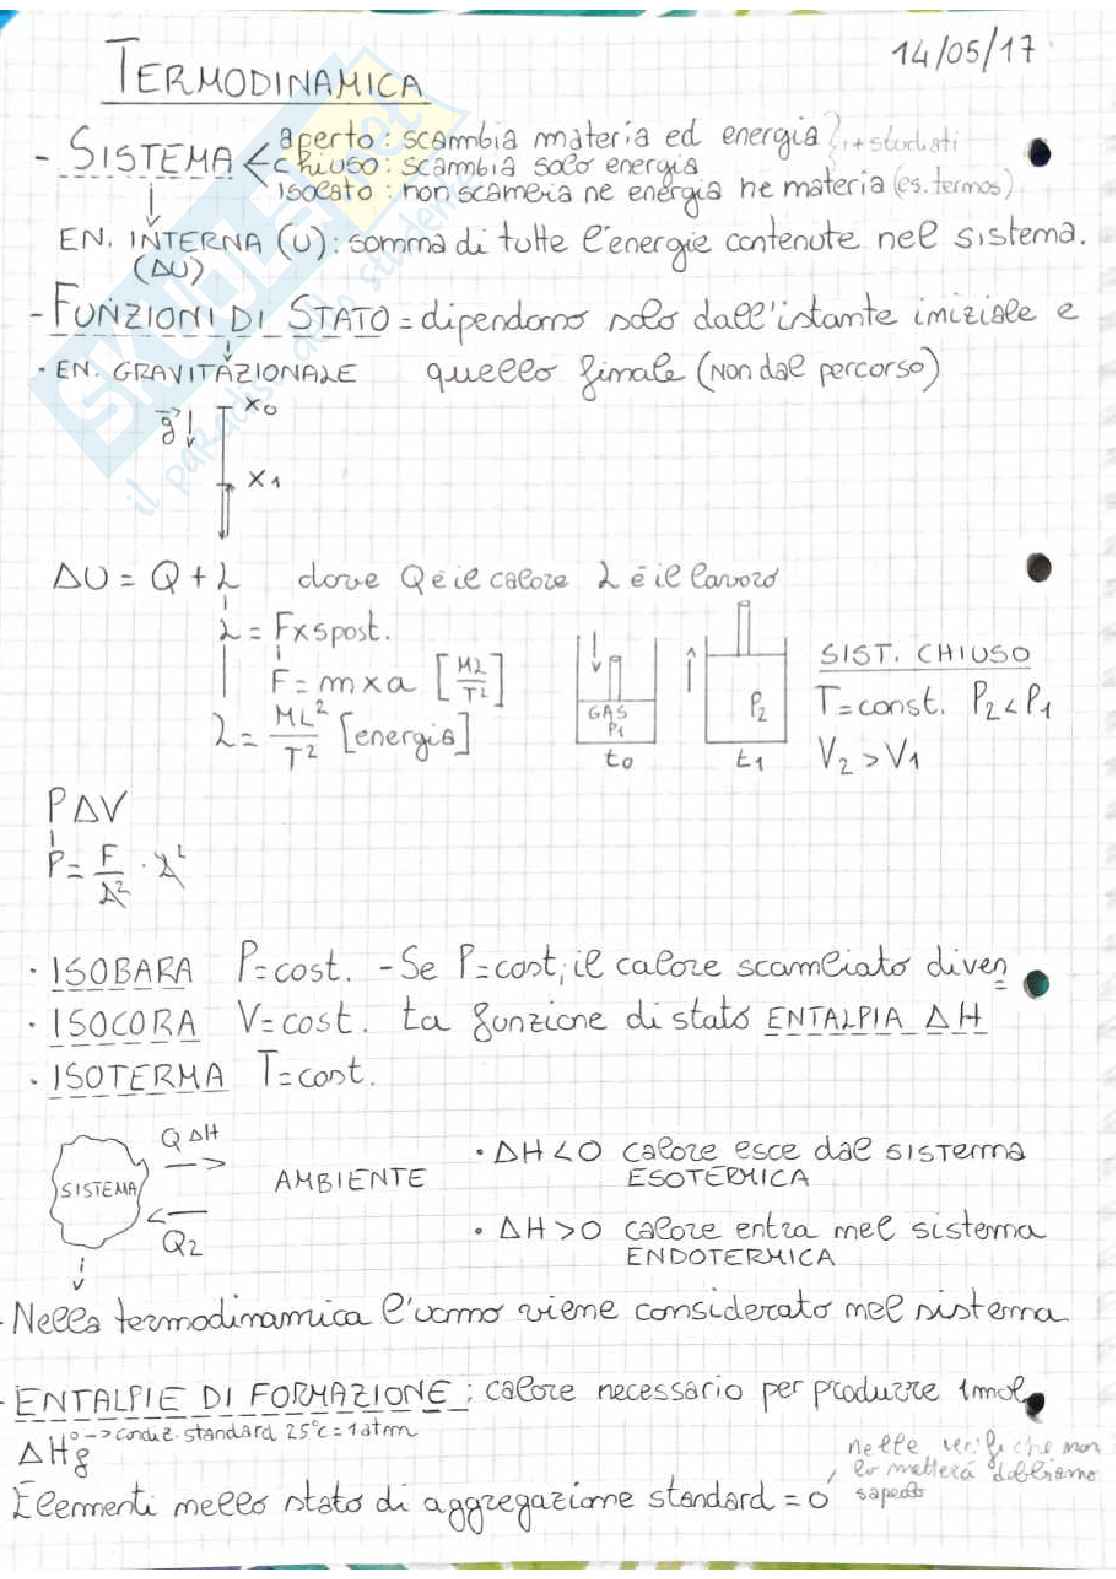 14/05/17
TERMODINAMICA
- SISTEMA < aperto: scambia materia ed energia } i + studiati
chiuso: scambia solo energia
isolato: non scambia ne energia ne materia (es. termos)
EN. INTERNA (U): somma di tutte l'energie contenute nel sistema.
(ΔU)
- FUNZIONI DI STATO = dipendono solo dall'istante iniziale e
· EN. GRAVITAZIONALE quello finale (non dal percorso)
g↓ x0
x1
ΔU = Q + L dove Q è il calore L è il lavoro
L = F x spost.
F = m x a [ML/T²]
L = ML²/T² [energia]
GAS
P1
t0
P2
t1
SIST. CHIUSO
T=const. P2<P1
V2>V1
PΔV
P = F/L² · L
· ISOBARA P=cost. - Se P=cost, il calore scambiato diven
· ISOCORA V=cost. ta funzione di stato ENTALPIA ΔH
· ISOTERMA T=cost.
SISTEMA
Q ΔH
→
AMBIENTE
←
Q2
· ΔH<0 calore esce dal sistema
ESOTERMICA
· ΔH>0 calore entra nel sistema
ENDOTERMICA
- Nella termodinamica l'uomo viene considerato nel sistema
- ENTALPIE DI FORMAZIONE: calore necessario per produrre 1mol
ΔHf° -> condiz. standard 25°C=1atm
Elementi nello stato di aggregazione standard = 0
nelle verifiche non
lo metterà, dobbiamo
saperlo
SKUOLA.net
il paradiso dello studente